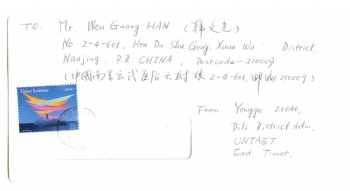 TO. Mr. Wen Guang HAN (韩文光)
No 2-4-601, Hou Da Shu Geng, Xuan Wu District
Nanjing, P.R CHINA, Postcode-210009
(中国南京玄武区后大树根 2-4-601, 邮编210009)
Timor Lorosae
From. Yongyo
Dili District Adm,
UNTAET
East Timor,